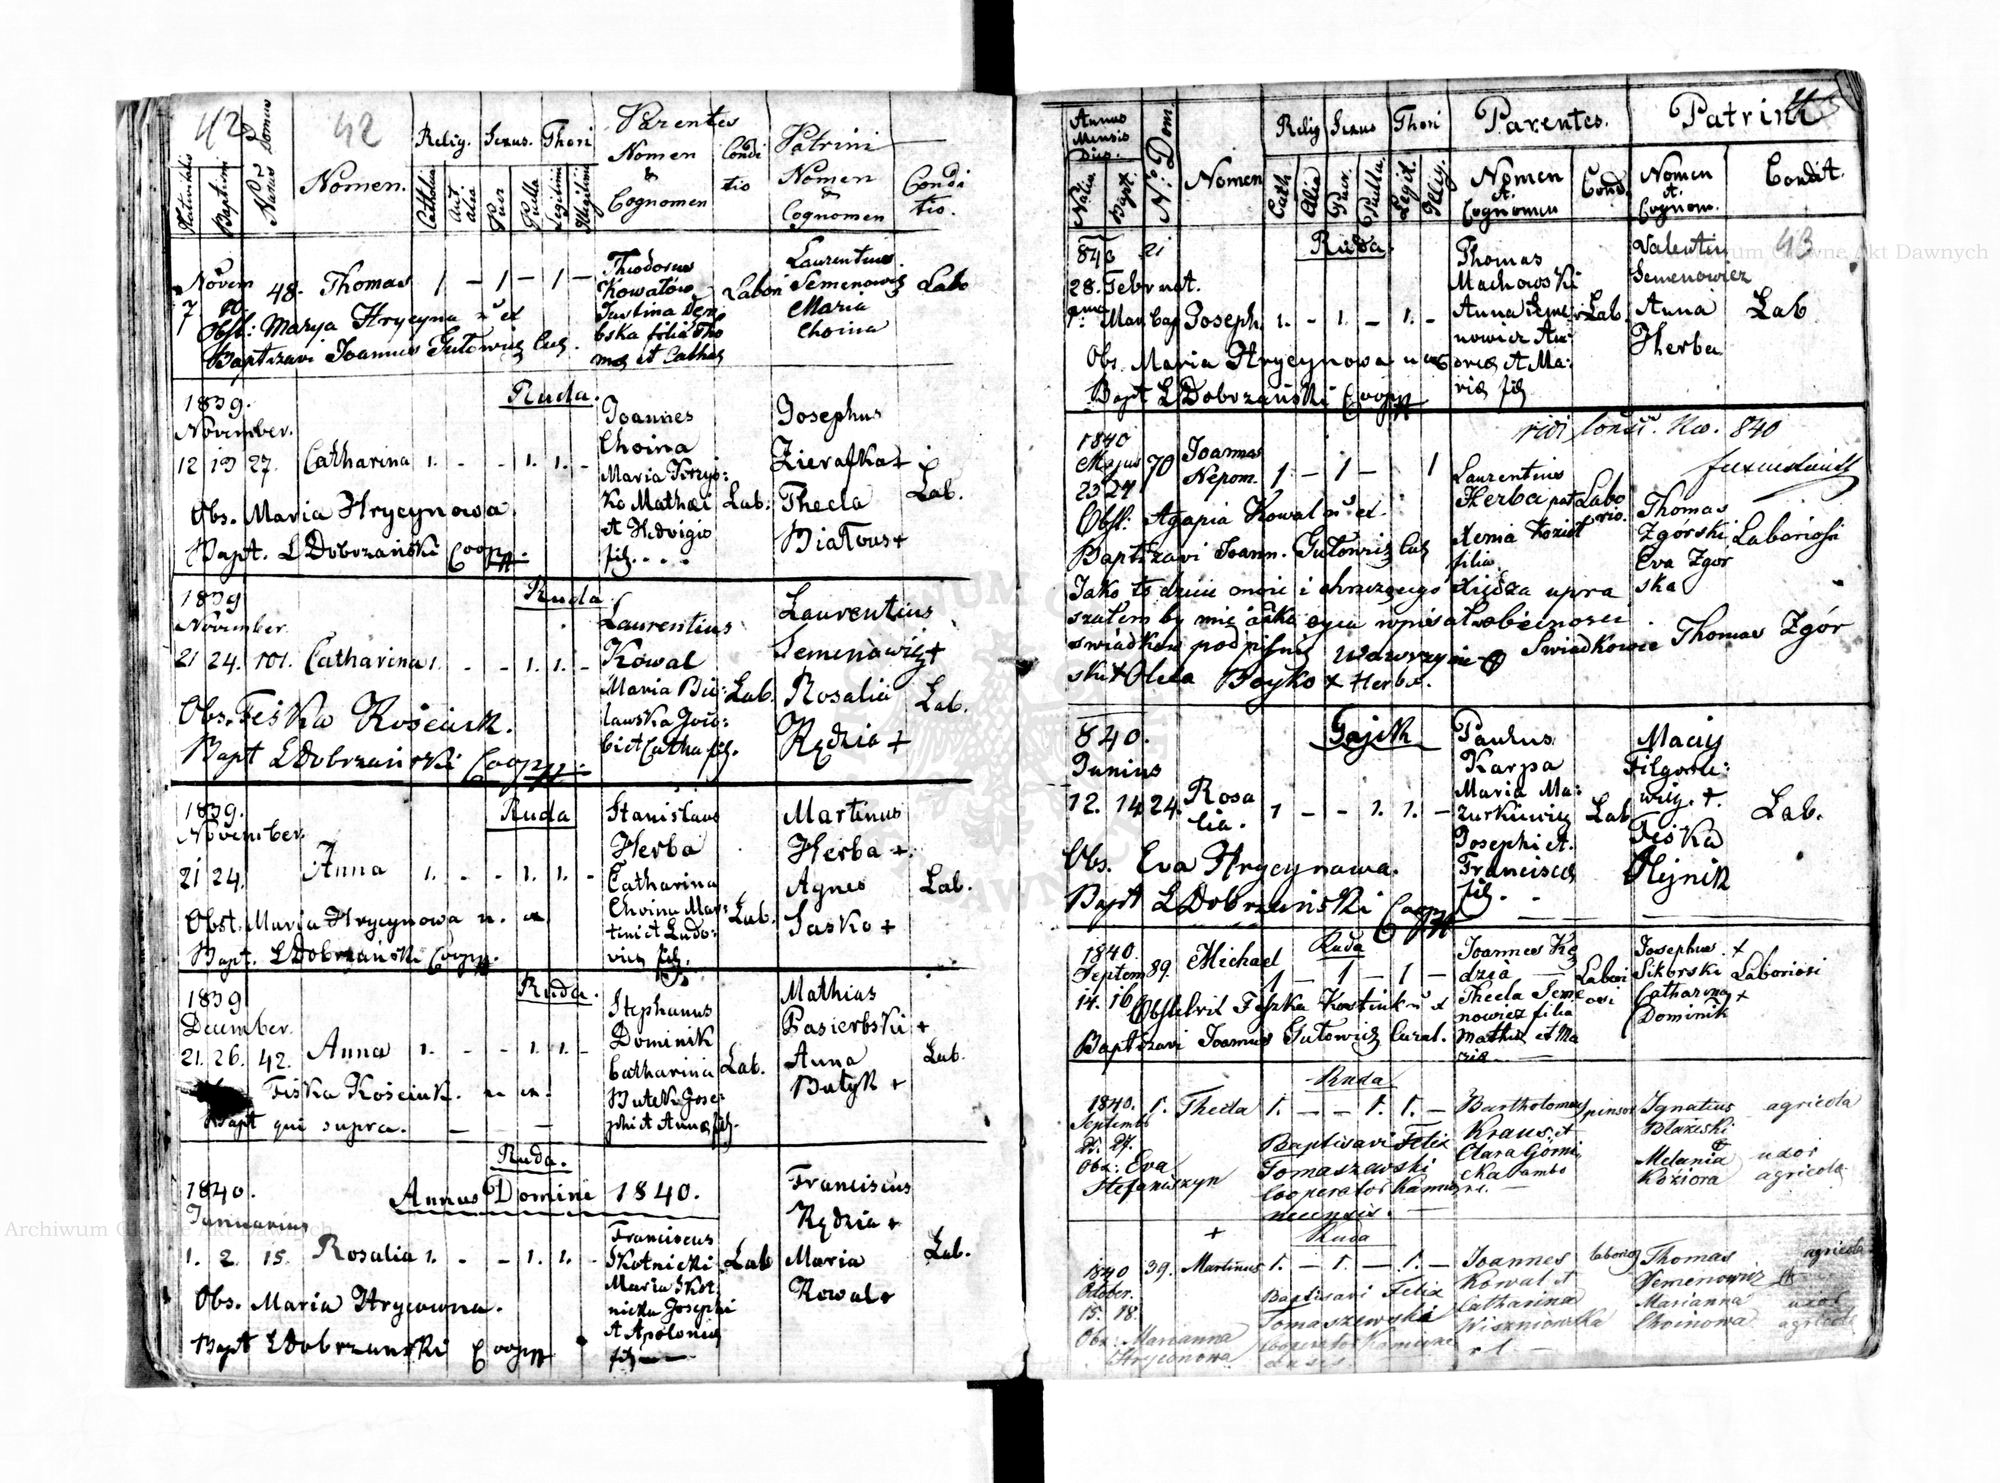 42
42
Nomen.
Relig. Sexus. Thori
Parentes
Nomen
&
Cognomen
Condi
tio
Patrini
Nomen
&
Cognomen
Condi
tio.
Naturitatis
Baptismi
Nrus Domus
Catholica
Aut alia
Puer
Puella
Legitimi
Illegitimi
Novem
7 10. 48. Thomas 1 – 1 – 1 –
Theodorus
Kowalów
Justina Dem
bska filia Tho
mæ et Cathæ
Labori
Laurentius
Semenowicz
Maria
Choina
Labo
Obst: Marya Hrycyna n ex
Baptizavi Joannes Gutowicz Cur.
1839.
November.
Ruda.
12 13 27. Catharina 1. - - 1. 1. -
Joannes
Choina
Maria Krzyś:
ko Mathæi
et Hedvigis
fil. . . .
Lab.
Josephus
Zierafka +
Thecla
Białous +
Lab.
Obs. Maria Hrycynowa
Bapt. L Dobrzański Coopr
1839
November.
Ruda
21 24. 101. Catharina 1. - - 1. 1. -
Laurentius
Kowal
Maria Bie:
lawska
biet Catha fil.
Lab.
Laurentius
Semenawicz +
Rosalia
Rędzia +
Lab.
Obs. Feśka Kościuk.
Bapt L Dobrzański Coopr.
1839.
November.
Ruda
21 24. Anna 1. - - 1. 1. -
Stanislaus
Herba
Catharina
Choina Mar:
tini et Ludo:
vicæ fil.
Lab.
Martinus
Herba +.
Agnes
Sasko +
Lab.
Obst. Maria Hrycynowa n. ex
Bapt. L Dobrzański Coopr.
1839
December.
Ruda.
21. 26. 42. Anna 1. - - 1. 1. -
Stephanus
Dominik
Catharina
Butek Jose:
phi et Annæ fil.
Lab.
Mathias
Pasierbski +
Anna
Butyk +
Lab.
Feśka Kościuk. n ex.
Bapt qui supra.
Ruda.
1840. Annus Domini 1840.
Januarius
1. 2. 15. Rosalia 1. - - 1. 1. -
Franciscus
Skotnicki
Maria Skot:
nicka Josephi
et Apoloniæ
fil
Lab
Franciscus
Rędzia +
Maria
Kowal +
Lab.
Obs. Maria Hrycowna.
Bapt L Dobrzański Coopr
Annus
Mensis
Dies.
Natus
Bapt.
Nro Dom.
Nomen
Relig Sexus Thori
Cath.
Alia
Puer.
Puella.
Legit.
Illeg.
Parentes.
Nomen
et
Cognomen
Cond.
Patrini
Nomen
et.
Cognom.
Condit.
43
843 21
28. Februat.
Mar. bap Joseph. 1. – 1. – 1. –
Ruda.
Thomas
Machowski
Anna Seme
nowicz An:
dreæ et Ma:
riæ fil
Lab.
Valentin
Semenowicz
Anna
Herba
Lab
Obs. Maria Hrycynowa n ex
Bapt L Dobrzański Coopr
840
1840
Majus
23 24 70 Joannes
Nepom. 1 – 1 – 1
Laurentius
Herba pat
Xenia Kozioł
filia
Labo
rio.
Thomas
Zgórski
Eva Zgór
ska
Laboriosi
Obst: Agapia Kowal n ex
Baptizavi Joann. Gutowicz Cur
Jako to dziecie moie i chrzczącego Xiędza upra
szałem by mię za oyca wpisał w obecności
swiadków podpisuię Wawrzyniec Swiadkowie Thomas Zgór
ski + Olexa Boyko + Herba.
840.
Junius
Gajek
12. 14 24. Rosa
lia. 1 – – 1. 1. –
Paulus
Karpa
Maria Ma:
zurkiewicz
Josephi et.
Franciscæ
fil.
Lab
Maciy
Filgowie:
wicz. +.
Feśka
Olejnik
Lab.
Obs. Eva Hrycynawa.
Bapt L Dobrzański Coopr
1840.
Septem 89. Michael
14. 16
Ruda
1 – 1 – 1 –
Joannes Rę
dzia
Thecla Seme
nowicz filia
Mathiæ et Ma
riæ
Labori
osi
Josephus +
Sikorski
Catharina +
Dominik
Laboriosi
Obstetrix Feszka Kostiuk n ex
Baptizavi Joannes Gutowicz Curat.
Ruda
1840.
Septembr
25. 27. 1. Thecla 1. – – 1. 1. –
Bartholomeus
Kraus et
Clara Górni
pinsor
Ignatius
Błażeski
Melania
Kozióra
agricola
uxor
agricolæ
Obs: Eva
Stefaniszyn
Baptisavi Felix
Tomaszewski
Cooperator Kamio
necensis.
+
Ruda
1840
October.
15. 18. 39. Martinus 1. – 1. – 1. –
Joannes
Kowal et
Catharina
Wiszniowska
laborios
Thomas
Semenowicz
Marianna
Choinowa
agricola
uxor
agricolæ
Obs: Marianna
Hrycionowa
Baptisavi Felix
Tomaszewski
Cooperator
Archiwum Główne Akt Dawnych
Archiwum Główne Akt Dawnych